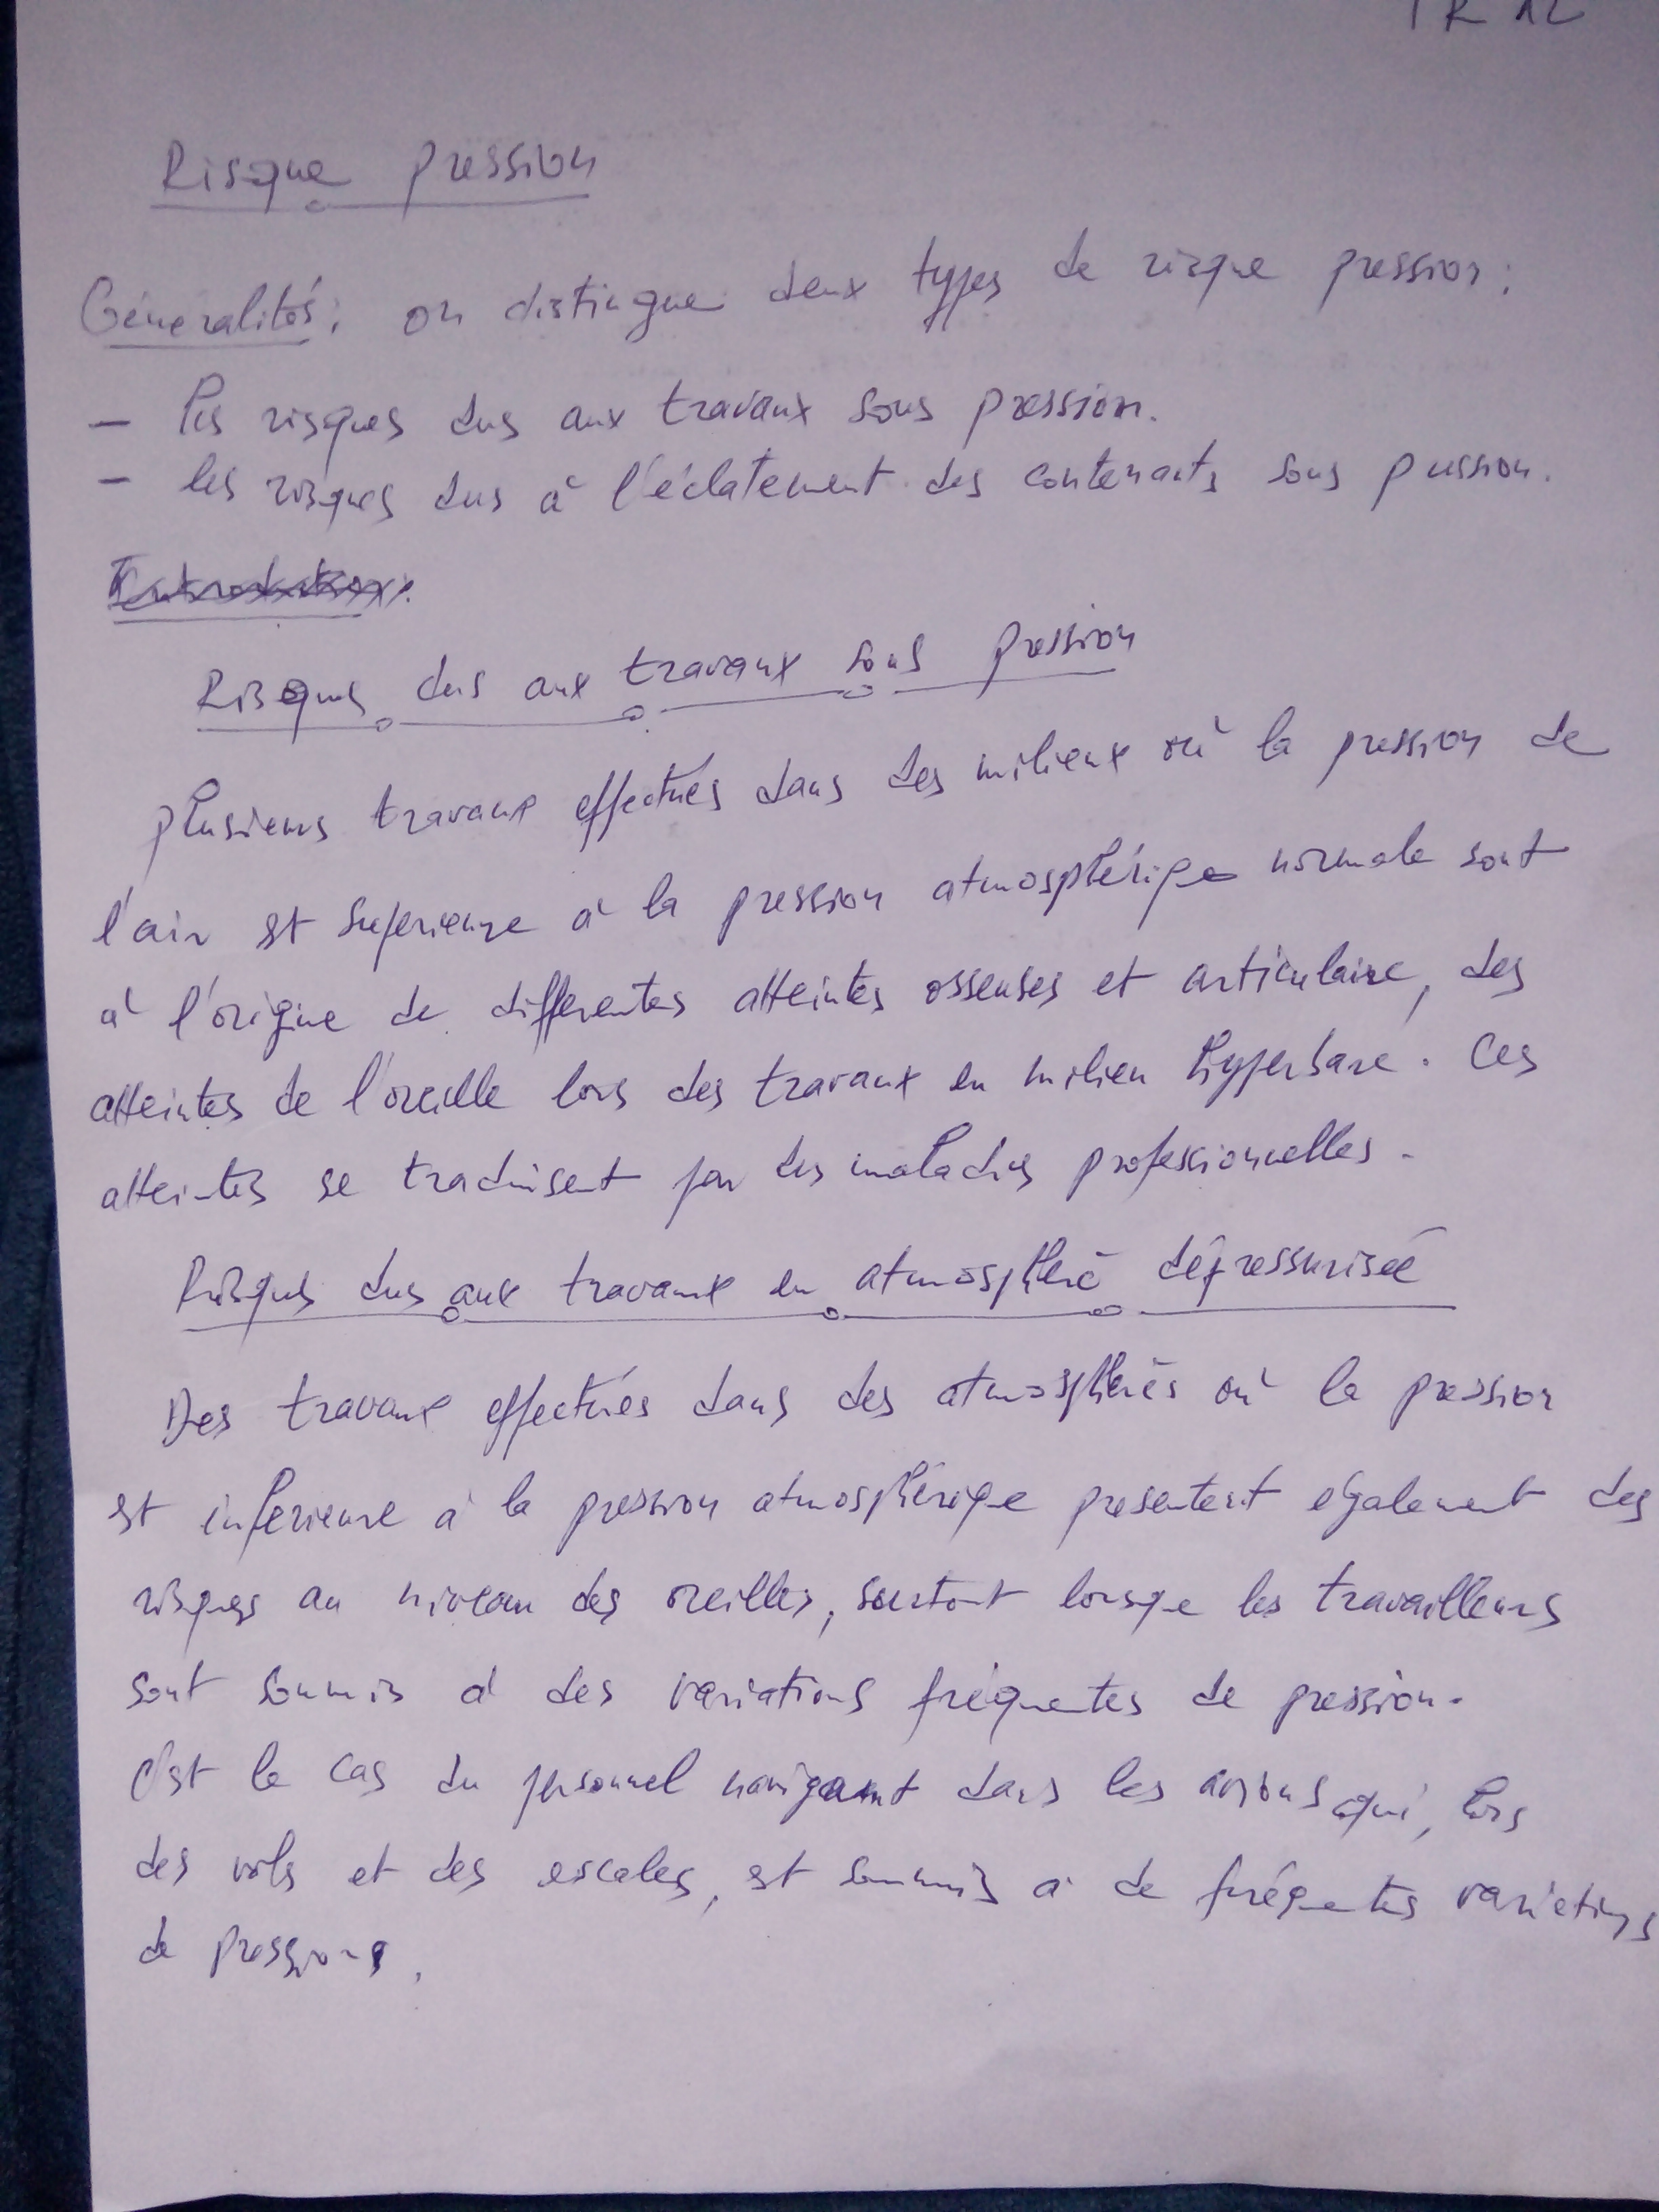 Risque pression
Généralités: on distingue deux types de risque pression:
- les risques dus aux travaux sous pression.
- les risques dus à l'éclatement des contenants sous pression.
Risques dus aux travaux sous pression
plusieurs travaux effectués dans des milieux où la pression de
l'air est superieure à la pression atmosphérique normale sont
à l'origine de differentes atteintes osseuses et articulaire, des
atteintes de l'oreille lors des travaux en milieu hyperbare. Ces
atteintes se traduisent par des maladies professionnelles.
Risques dus aux travaux en atmosphère dépressurisée
Des travaux effectués dans des atmosphères où la pression
est inferieure à la pression atmosphérique presentent également des
risques au niveau des oreilles, surtout lorsque les travailleurs
sont soumis à des variations fréquentes de pression.
C'est le cas du personnel navigant dans les avions qui, lors
des vols et des escales, est soumis à de fréquentes variations
de pressions.